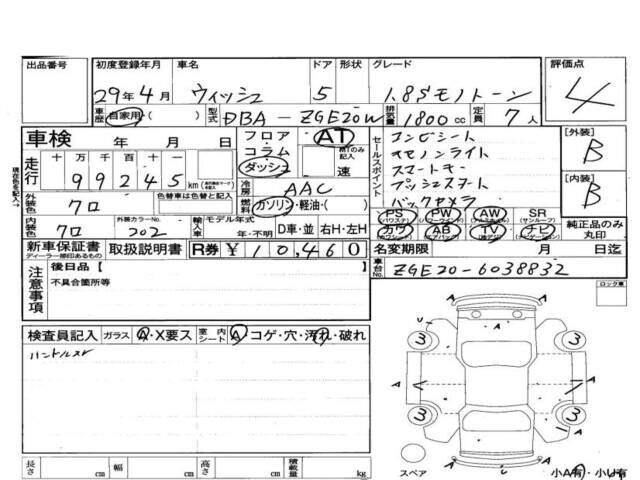 出品番号 初度登録年月 車名 ドア 形状 グレード 評価点
29年4月 ウィッシュ 5 1.8Sモノトーン 4
車歴 自家用・( ) 型式 DBA-ZGE20W 排気量 1800cc 定員 7人
車検 年 月 日
フロア・コラム・ダッシュ AT MTのみ記入 速
セールスポイント
コンビシート
HIDライト
スマートキー
プッシュスタート
バックカメラ
[外装] B
[内装] B
現在色を記入→
走行 十 万 千 百 十 一
99245km
冷房 AAC
外装色 クロ 色替車は色替と記入
燃料 ガソリン・軽油・( )
内装色 クロ 外装カラーNo. 202
輸入車 モデル年式 年・不明 D車・並 右H・左H
PS (パワステ) PW (パワーウィンド) AW (アルミホイール) SR (サンルーフ)
カワ (カワシート) AB (エアバック) TV ナビ (ナビゲーション)
純正品のみ丸印
新車保証書 ディーラー印のあるもの 取扱説明書 R券 ¥10,460
名変期限 月 日迄
車台No. ZGE20-6038832
注意事項 後日品【
不具合箇所等
ロック車
検査員記入 ガラス A・X要ス 室内シート A・コゲ・穴・汚れ・破れ
ハンドルスレ
3 3
3 3
A A A A A A
スペア
小A有・小U有
長さ cm 幅 cm 高さ cm 積載量 kg